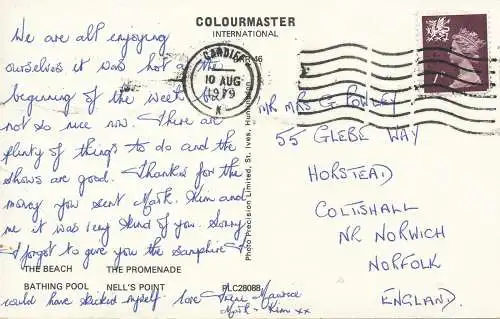 COLOURMASTER
INTERNATIONAL
We are all enjoying
ourselves it was hot at the
beginning of the week but
not so nice now. There are
plenty of things to do and the
shows are good. Thanks for the
money you sent Mark, Kim and
me it was very kind of you. Sorry
I forgot to give you the samphire I
could have kicked myself. love Maurice
Mark - Kim xx
THE BEACH THE PROMENADE
BATHING POOL NELL'S POINT PLC28088
Photo Precision Limited, St. Ives, Huntingdon
CARDIFF
10 AUG
1979
MR MRS G POWLEY
55 GLEBE WAY
HORSTEAD
COLTISHALL
NR NORWICH
NORFOLK
ENGLAND.